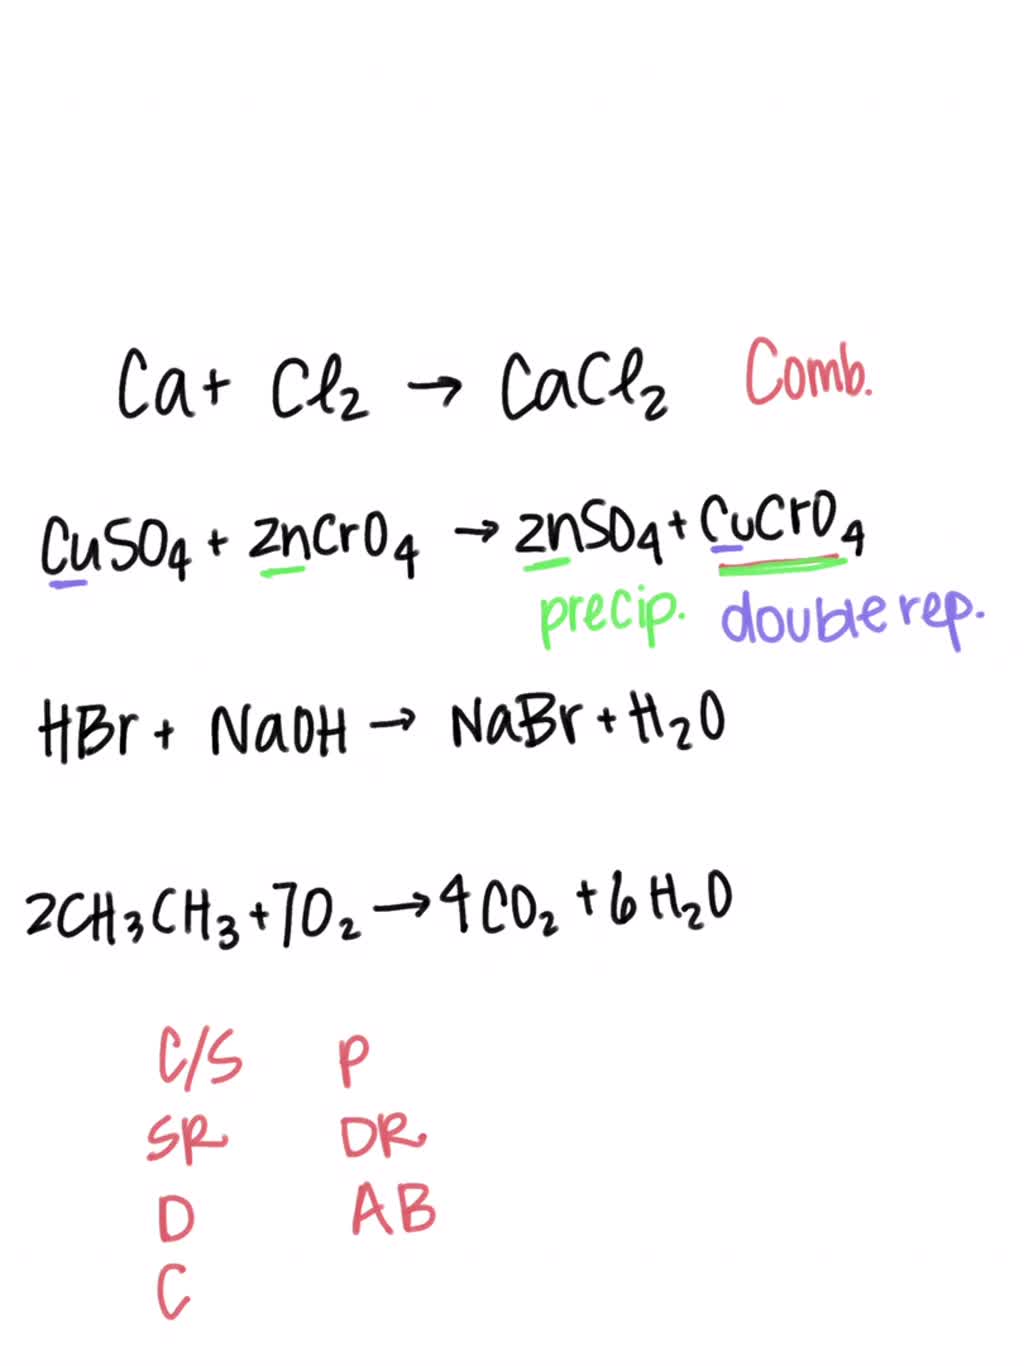 Ca + Cl₂ → CaCl₂ Comb.
CuSO₄ + znCrO₄ → znSO₄ + CuCrO₄
precip. double rep.
HBr + NaOH → NaBr + H₂O
2CH₃CH₃ + 7O₂ → 4CO₂ + 6H₂O
C/S P
SR DR
D AB
C